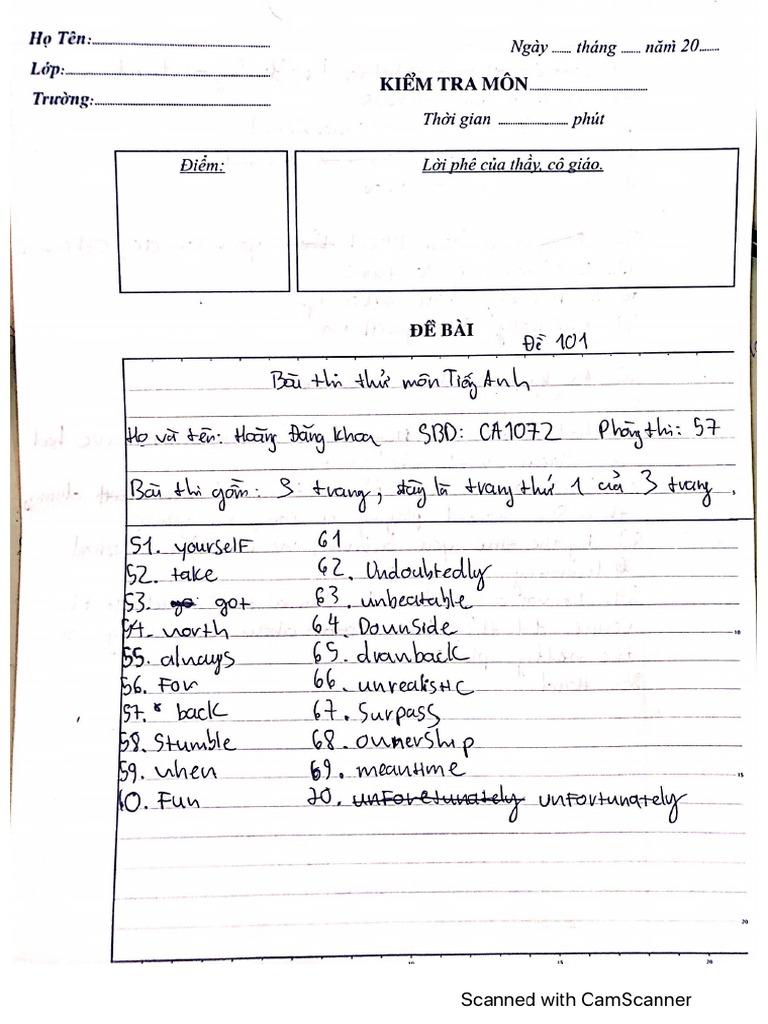 Họ Tên:
Ngày ...... tháng ...... năm 20......
Lớp:
KIỂM TRA MÔN
Trường:
Thời gian ...... phút
Điểm:
Lời phê của thầy, cô giáo.
ĐỀ BÀI
Đề 101
Bài thi thử môn Tiếng Anh
Họ và tên: Hoàng Đăng Khoa SBD: CA1072 Phòng thi: 57
Bài thi gồm: 3 trang, đây là trang thứ 1 của 3 trang.
51. yourself
52. take
53. got
54. north
55. always
56. For
57. back
58. Stumble
59. when
60. Fun
61
62. Undoubtedly
63. unbeatable
64. Downside
65. drawback
66. unrealistic
67. Surpass
68. ownership
69. meantime
70. unfortunately unfortunately
10
15
20
10 15 20
Scanned with CamScanner